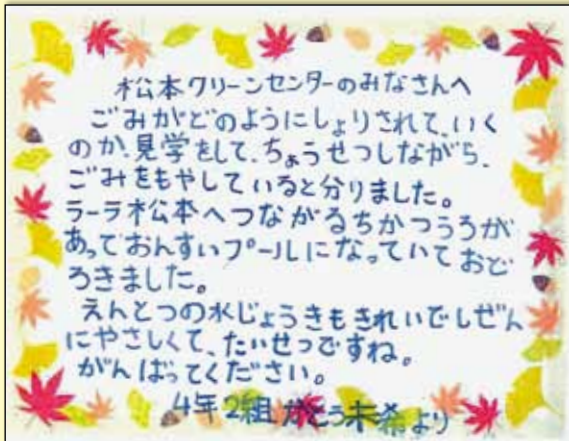 松本クリーンセンターのみなさんへ
ごみがどのようにしょりされて、いく
のか、見学をして、ちょうせつしながら、
ごみをもやしていると分りました。
ラーラ松本へつながるちかつうろが
あっておんすいプールになっていておど
ろきました。
えんとつの水じょうきもきれいでしぜん
にやさしくて、たいせつですね。
がんばってください。
4年2組 かとう未希より